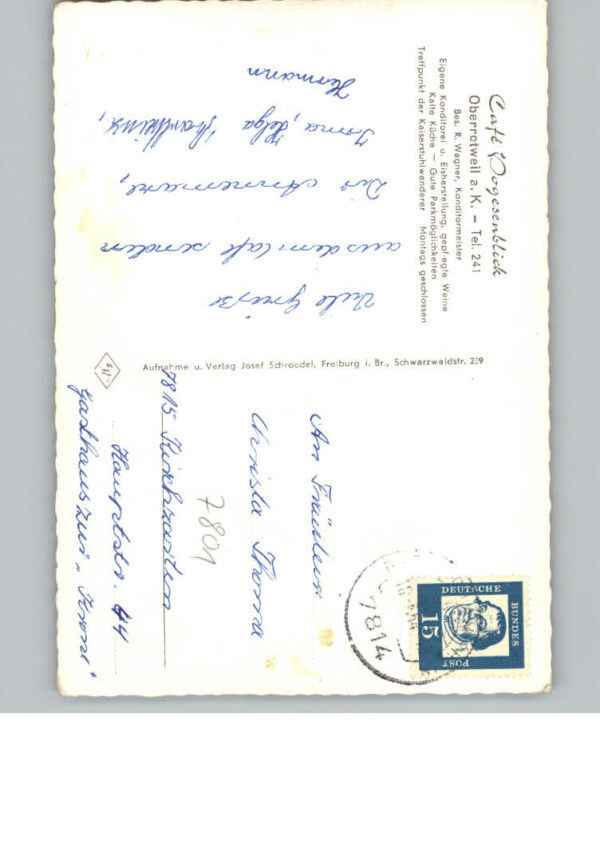 Café Vogesenblick
Oberrotweil a. K. – Tel. 241
Bes. R. Wagner, Konditormeister
Eigene Konditorei u. Eisherstellung, gepflegte Weine
Kalte Küche – Gute Parkmöglichkeiten
Treffpunkt der Kaiserstuhlwanderer Montags geschlossen
Viele Grüße
aus dem Café senden
Dir Annemarie,
Irma, Helga
Hermann
Aufnahme u. Verlag Josef Schroedel, Freiburg i. Br., Schwarzwaldstr. 239
7814
DEUTSCHE
BUNDES
POST
15
An Fräulein
Christa Thoma
7801
7815 Kirchzarten
Hauptstr. 44
Gasthaus zur „Krone"